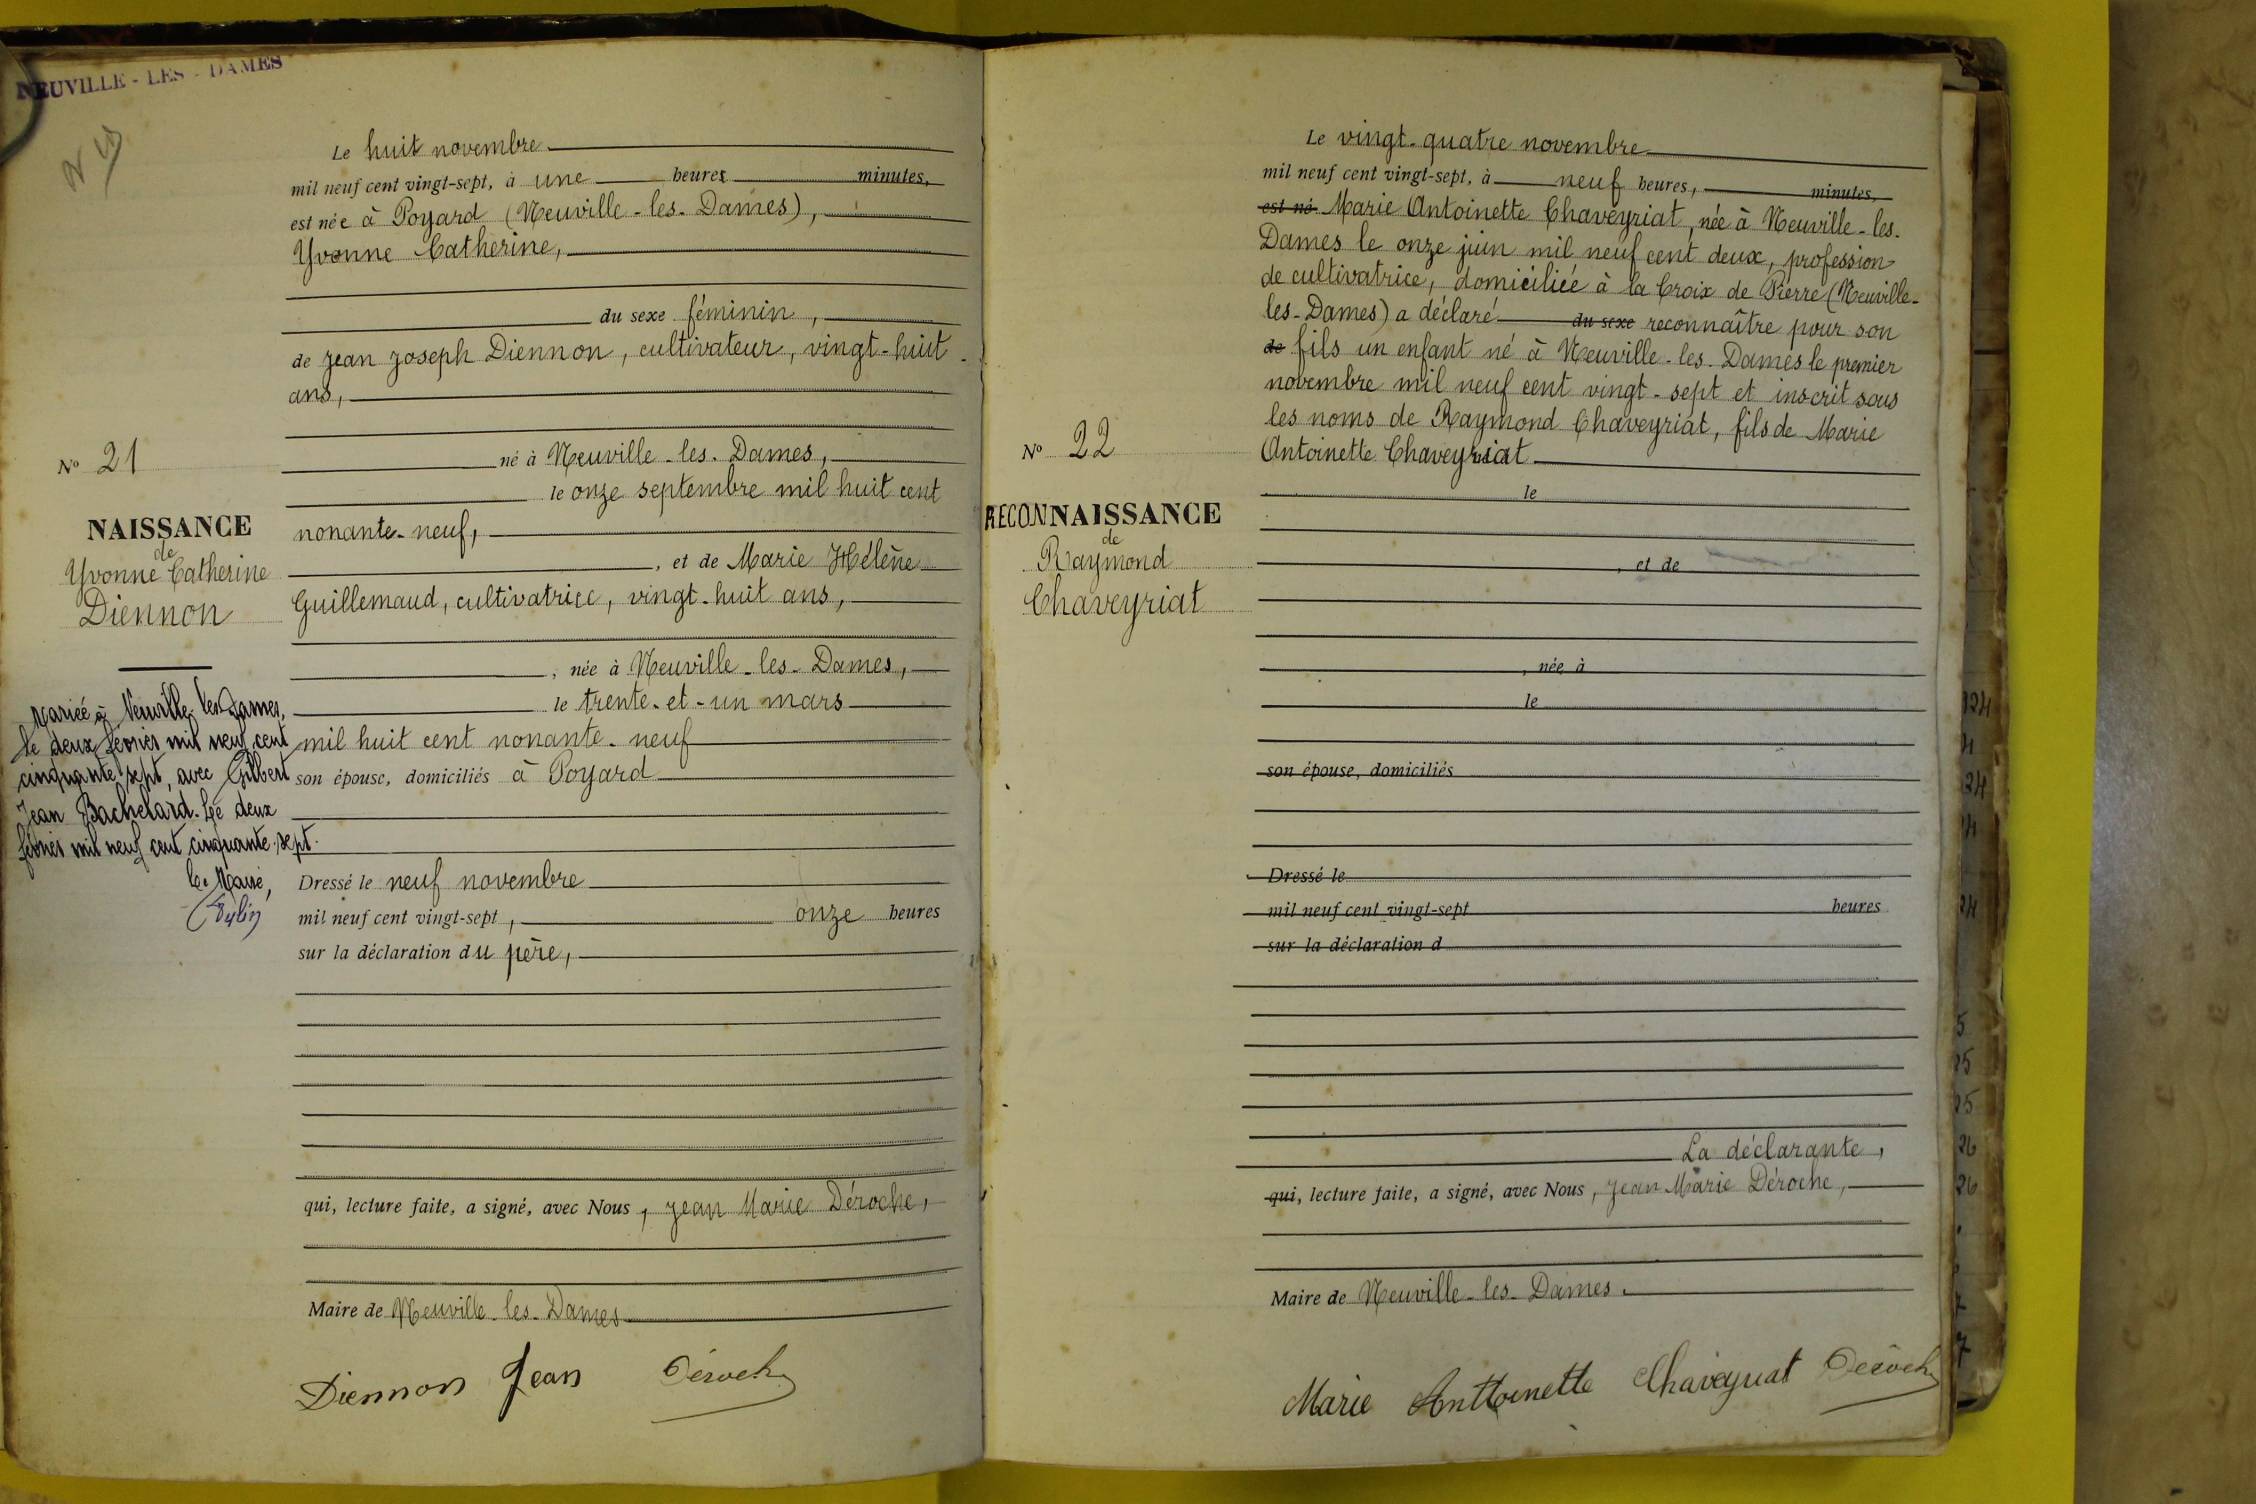 NEUVILLE - LES - DAMES
Le huit novembre
mil neuf cent vingt-sept, à une heures minutes,
est née à Poyard (Neuville-les-Dames),
Yvonne Catherine,
du sexe féminin,
de Jean Joseph Diennon, cultivateur, vingt-huit
ans,
né à Neuville-les-Dames,
le onze septembre mil huit cent
nonante-neuf,
, et de Marie Hélène
Guillemaud, cultivatrice, vingt-huit ans,
, née à Neuville-les-Dames,
le trente-et-un mars
mil huit cent nonante-neuf
son épouse, domiciliés à Poyard
Dressé le neuf novembre
mil neuf cent vingt-sept, onze heures
sur la déclaration du père,
qui, lecture faite, a signé, avec Nous, Jean Marie Déroche,
Maire de Neuville-les-Dames
Diennon Jean Déroche
N° 21
NAISSANCE
de
Yvonne Catherine
Diennon
Mariée à Neuville-les-Dames,
le deux février mil neuf cent
cinquante sept, avec Gilbert
Jean Bachelard. Le deux
février mil neuf cent cinquante-sept.
Le Maire,
Le vingt-quatre novembre
mil neuf cent vingt-sept, à neuf heures, minutes,
est né Marie Antoinette Chaveyriat, née à Neuville-les-
Dames le onze juin mil neuf cent deux, profession
de cultivatrice, domiciliée à la Croix de Pierre (Neuville-
les-Dames) a déclaré du sexe reconnaître pour son
de fils un enfant né à Neuville-les-Dames le premier
novembre mil neuf cent vingt-sept et inscrit sous
les noms de Raymond Chaveyriat, fils de Marie
Antoinette Chaveyriat
le
, et de
, née à
le
son épouse, domiciliés
Dressé le
mil neuf cent vingt-sept heures
sur la déclaration d
La déclarante,
qui, lecture faite, a signé, avec Nous, Jean Marie Déroche,
Maire de Neuville-les-Dames.
Marie Anttoinette Chaveyriat Déroche
N° 22
RECONNAISSANCE
de
Raymond
Chaveyriat
24
24
25
25
26
26
7
7